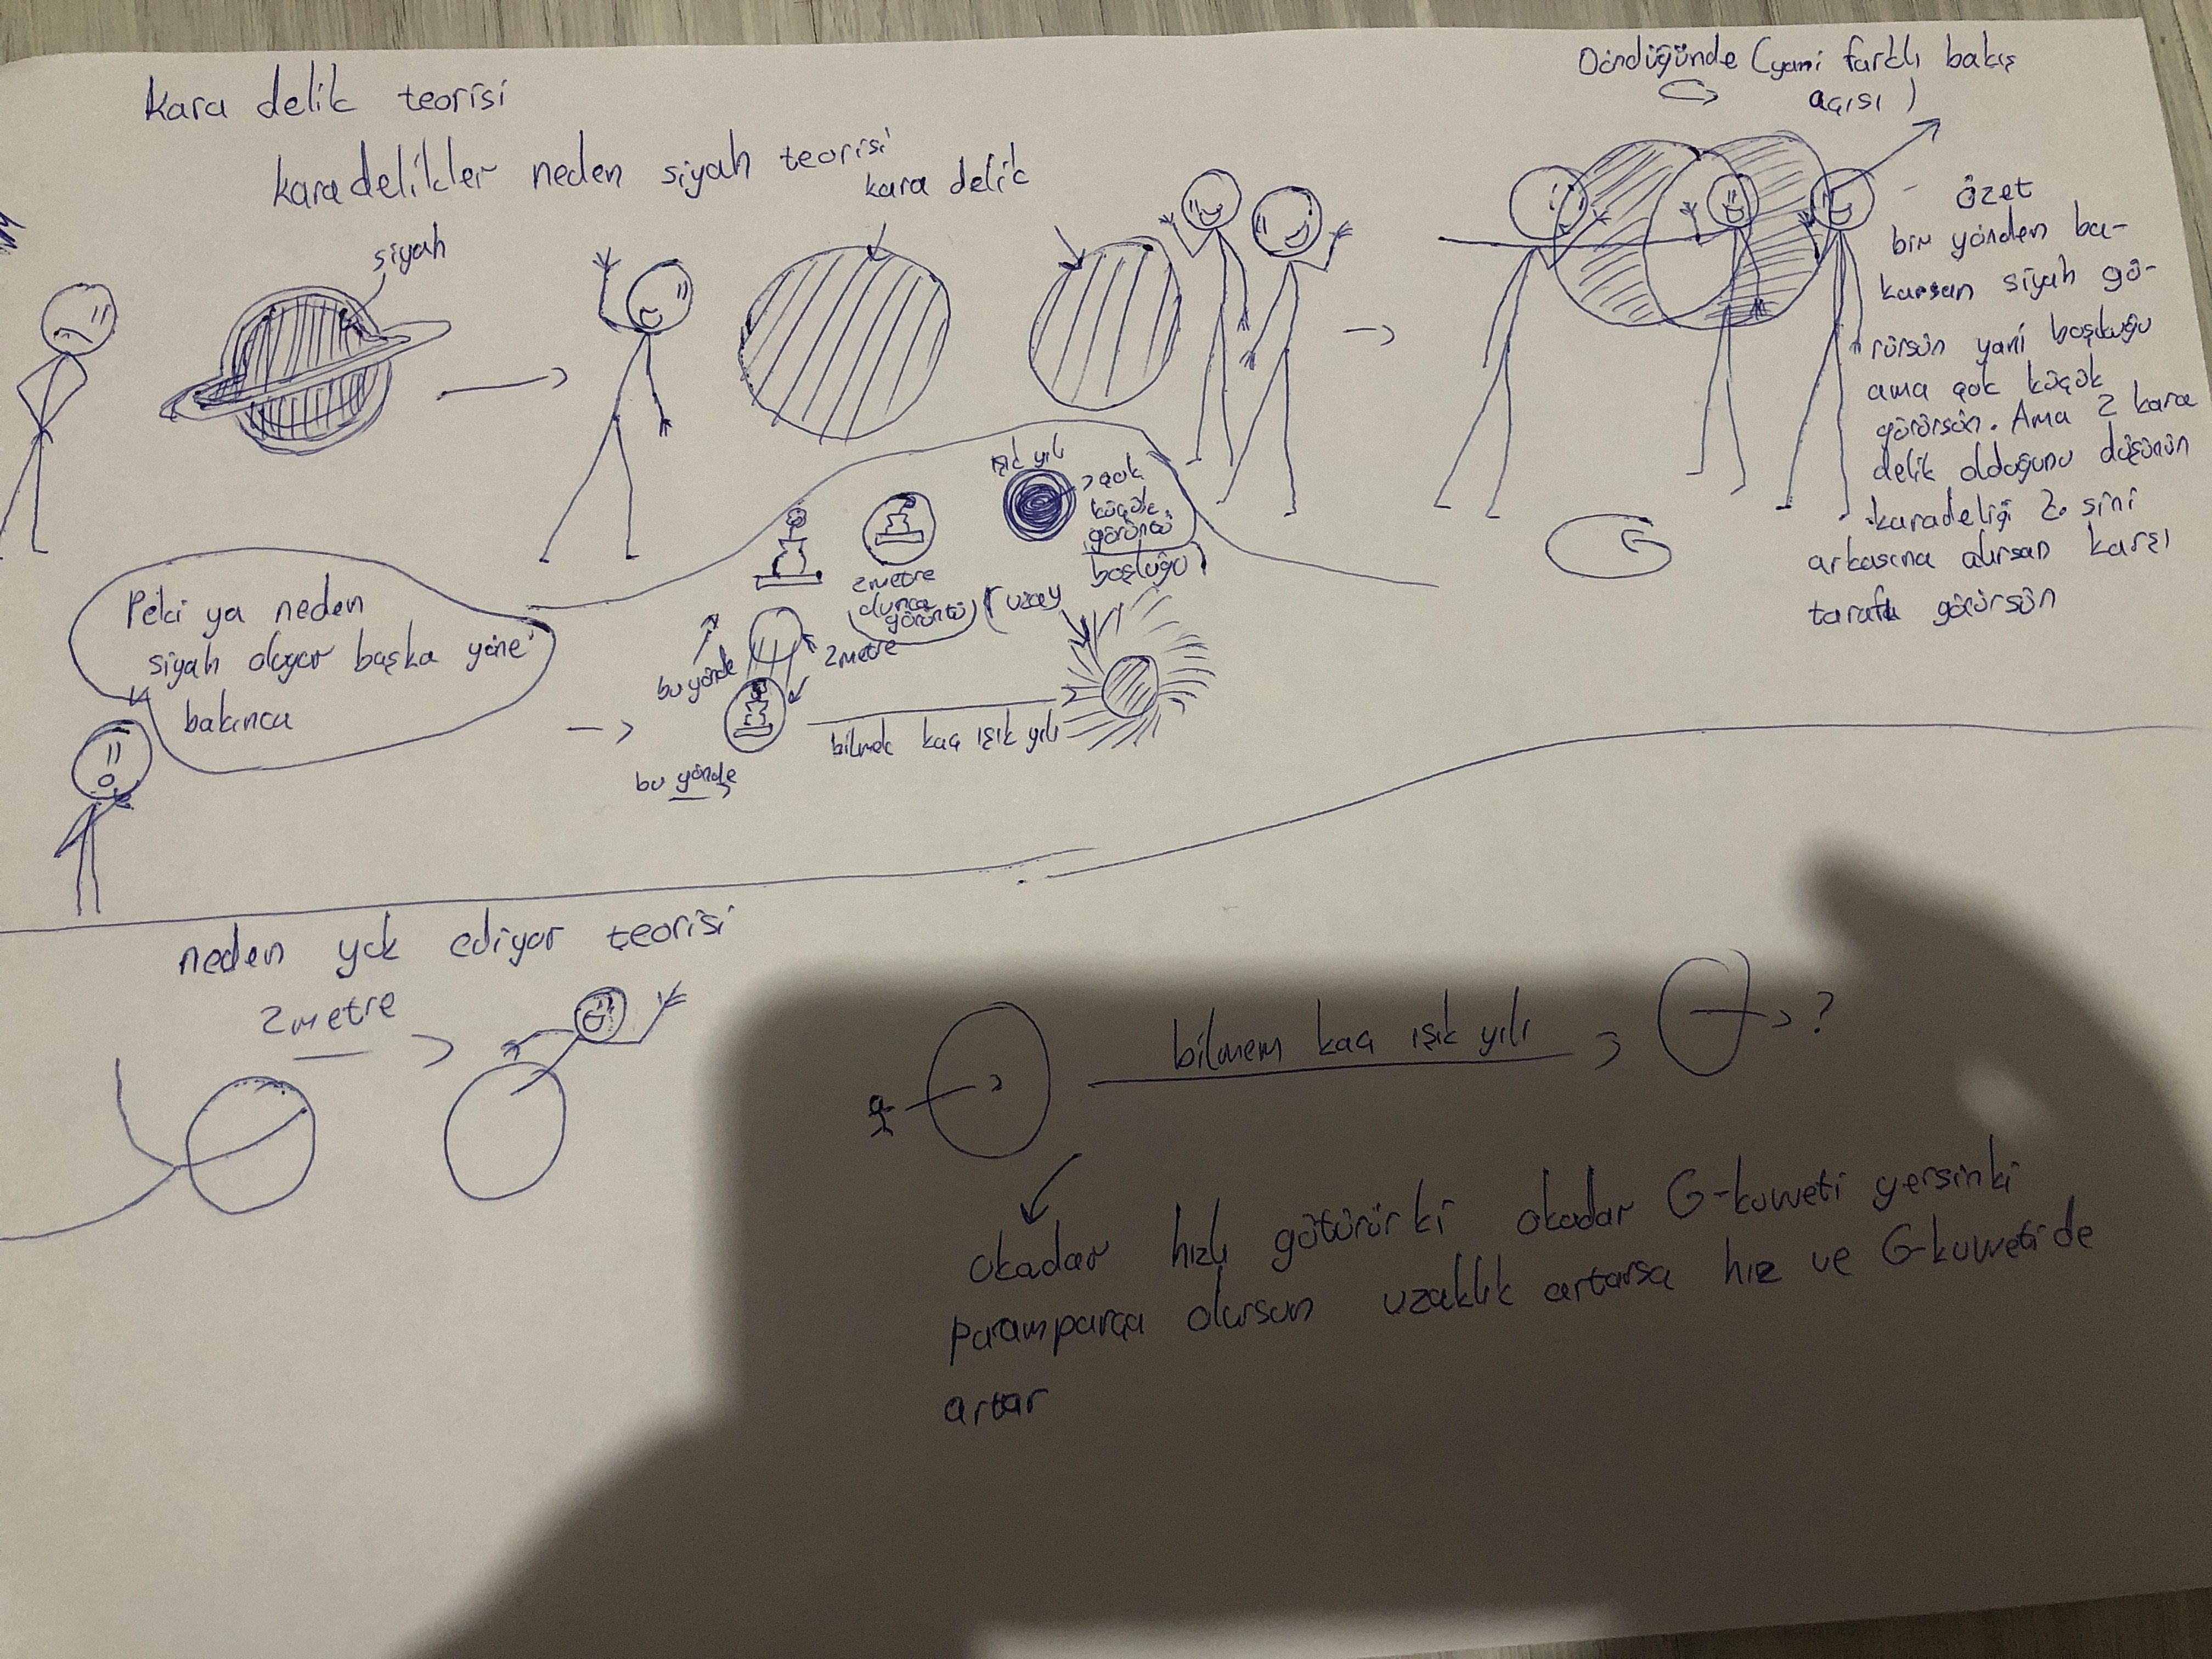 Kara delik teorisi
karadelikler neden siyah teorisi
kara delik
siyah
Döndüğünde (yani farklı bakış
açısı)
özet
bir yönden ba-
karsan siyah gö-
rürsün yani boşluğu
ama çok küçük
görürsün. Ama 2 kara
delik olduğunu düşünün
karadeliği 2. sini
arkasına alırsan karşı
tarafı görürsün
Peki ya neden
siyah oluyor başka yöne
bakınca
ışık yılı
çok
küçük
görüntü
boşluğu
2 metre
olunca
görüntü
(uzay
bu yönde
2 metre
bilmek kaç ışık yılı
bu yönde
neden yok ediyor teorisi
2 metre
bilmem kaç ışık yılı
?
okadar hızlı götürürki okadar G-kuvveti yersinki
paramparça olursun uzaklık artarsa hız ve G-kuvvetide
artar